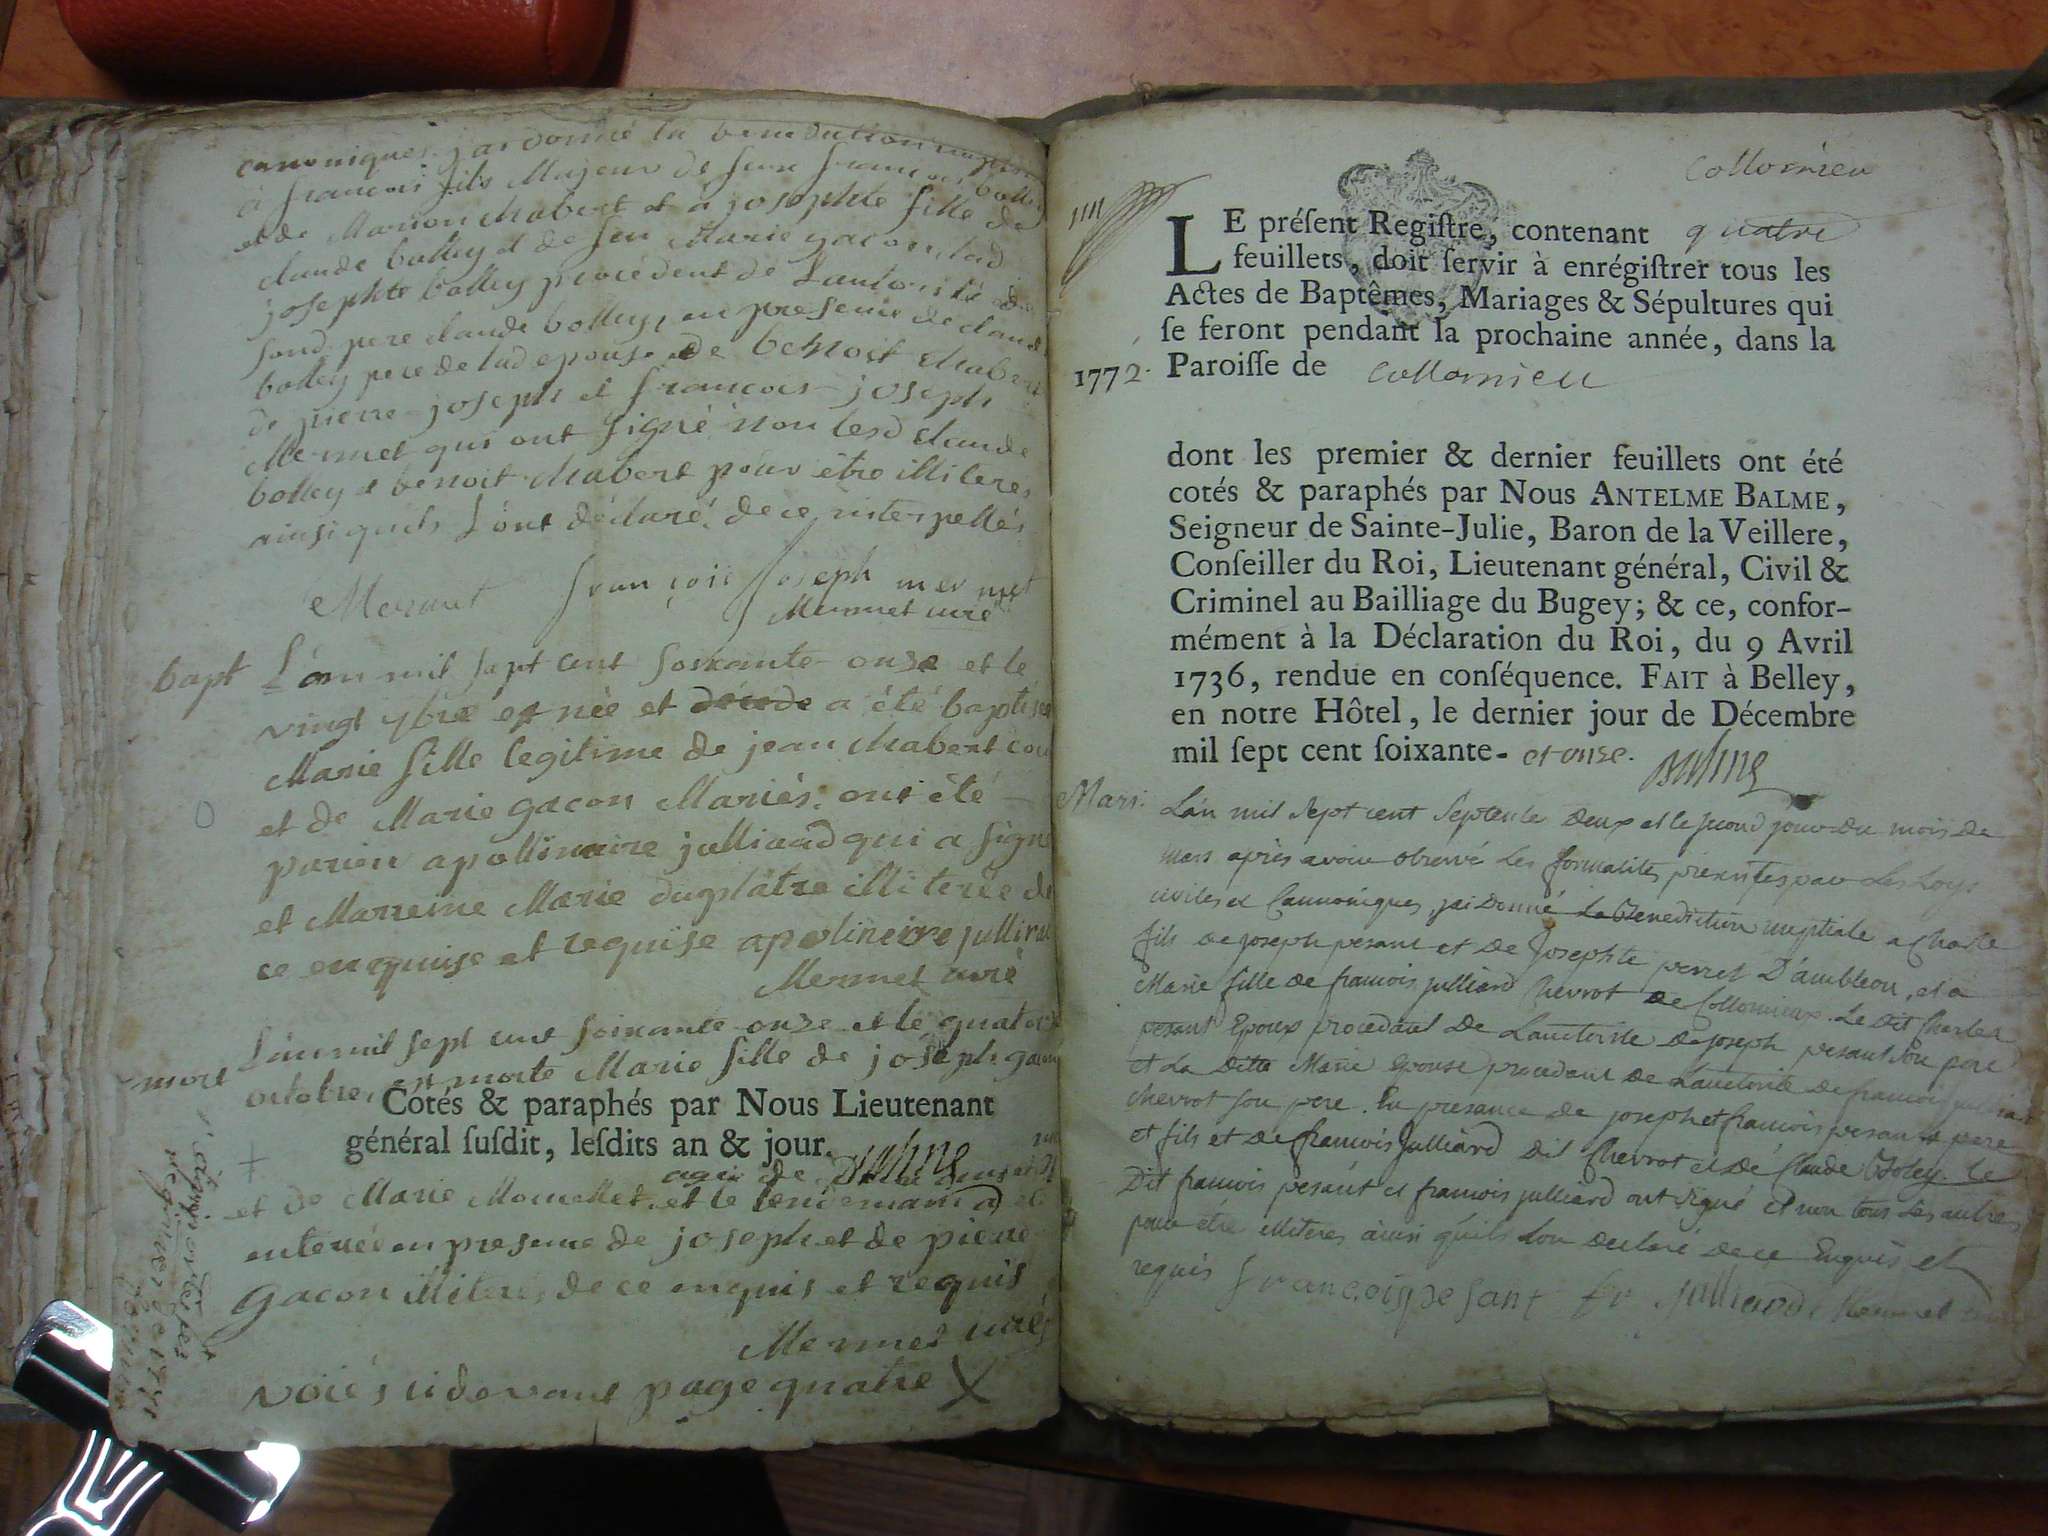 canoniques, j'ai donné la benediction nuptiale
à francois fils Majeur de feux francois bolley
et de Marion Mabert et à josephte fille de
claude bolley et de feu Marie gacon lad
josephte bolley procedent de Lautorité de
sond pere claude bolley, en presence de claude
bolley pere de lad epouse de benoit Mabert
de pierre joseph et francois joseph
Mermet qui ont signé non lesd claude
bolley et benoit Mabert pour être illiteres
ainsi quils L'ont déclaré, de ce interpellés
Mermet françois joseph mermet
Mermet curé
bapt L'an mil sept cent soixante onze et le
vingt 7bre est née et a été baptisée
Marie fille legitime de jean Mabert
et de Marie gacon Mariés. ont été
parein apollinaire julliard qui a signé
et Marreine Marie duplâtre illiterée de
ce enquise et requise apolineire jullird
Mermet curé
L'an mil sept cent soixante onze et le quatorze
mort octobre, est morte Marie fille de joseph gacon
Cotés & paraphés par Nous Lieutenant
général suſdit, leſdits an & jour. Balme
agée de
et de Marie Mounet et le lendemain a été
enterrée en presence de joseph et de pierre
Gacon illiteres de ce enquis et requis
Mermet curé
voiés ci devant page quatre X
Collomieu
LE préſent Regiſtre, contenant quatre
feuillets, doit ſervir à enrégiſtrer tous les
Actes de Baptêmes, Mariages & Sépultures qui
ſe feront pendant la prochaine année, dans la
1772. Paroiſſe de Collomieu
dont les premier & dernier feuillets ont été
cotés & paraphés par Nous ANTELME BALME,
Seigneur de Sainte-Julie, Baron de la Veillere,
Conſeiller du Roi, Lieutenant général, Civil &
Criminel au Bailliage du Bugey; & ce, confor-
mément à la Déclaration du Roi, du 9 Avril
1736, rendue en conſéquence. FAIT à Belley,
en notre Hôtel, le dernier jour de Décembre
mil ſept cent ſoixante- et onze. Balme
Mari: L'an mil sept cent septente deux et le second jour du mois de
mars après avoir observé les formalites prescrites par les Loys
civiles et Cannoniques, jai Donné la Benediction nuptiale a Charle
fils de joseph pesant et de Josephte perret D'ambleon, et a
Marie fille de francois julliard Chevrot de Collomieux. Le Dit Charles
pesant Epoux procedant de Lauctorite de joseph pesant son pere
et La Ditte Marie Epouse procedant de Lauctorite de francois julliard
Chevrot son pere. En presance de joseph et francois pesant pere
et fils et de francois Julliard Dit Chevrot et de Claude Boley. le
Dit francois pesant et francois julliard ont signé et non tous les autres
pour être illiteres ainsi quils Lon declaré de ce Enquis et
requis françois pesant fr julliard Mermet